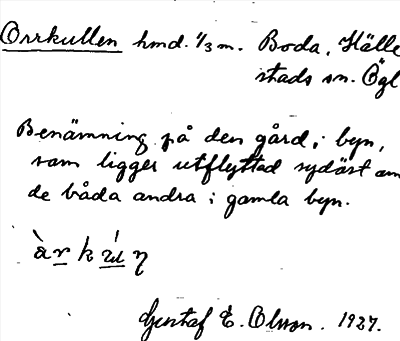 Orrkullen hmd. 1/3 m. Boda, Hälle
stads sn. Ögl
Benämning på den gård i byn,
som ligger utflyttad sydöst om
de båda andra i gamla byn.
Gustaf E. Olsson. 1927.